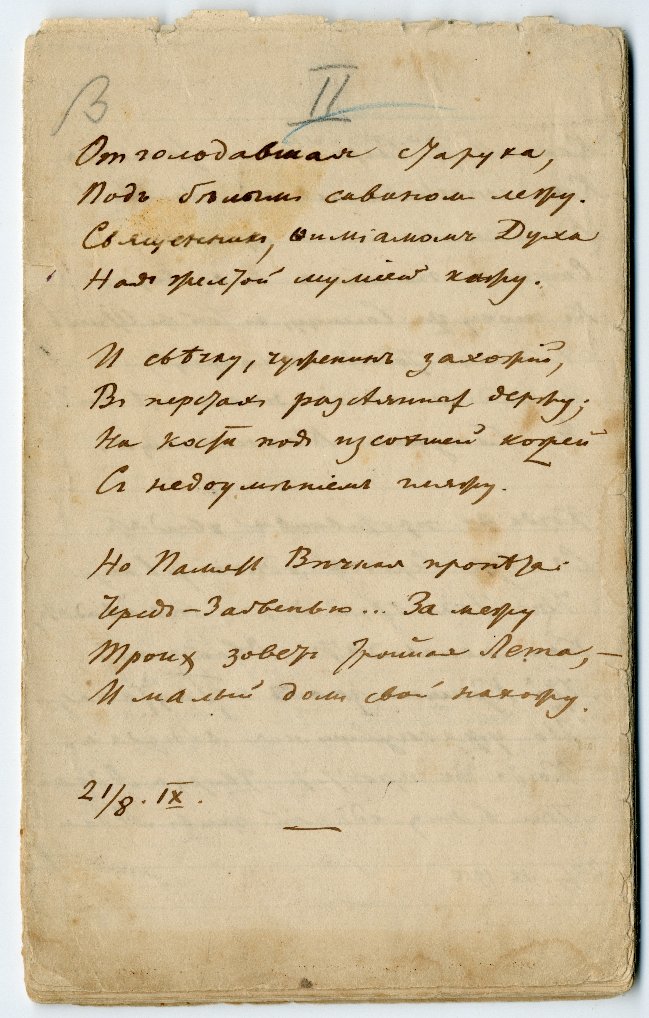 В II
Отголодавшая старуха,
Подъ бѣлымъ саваномъ лежу.
Священникъ, ѳиміамомъ Духа
Надъ желтой муміей кажу.
И свѣчку, чуженинъ захожій,
Въ перстахъ разсѣянныхъ держу;
На кости подъ изсохшей кожей
Съ недоумѣніемъ гляжу.
Но Память Вѣчная пропѣта
–Забвенью... За межу
Троихъ зоветъ тройная Лета, –
И малый домъ свой нахожу.
21/8. IX.